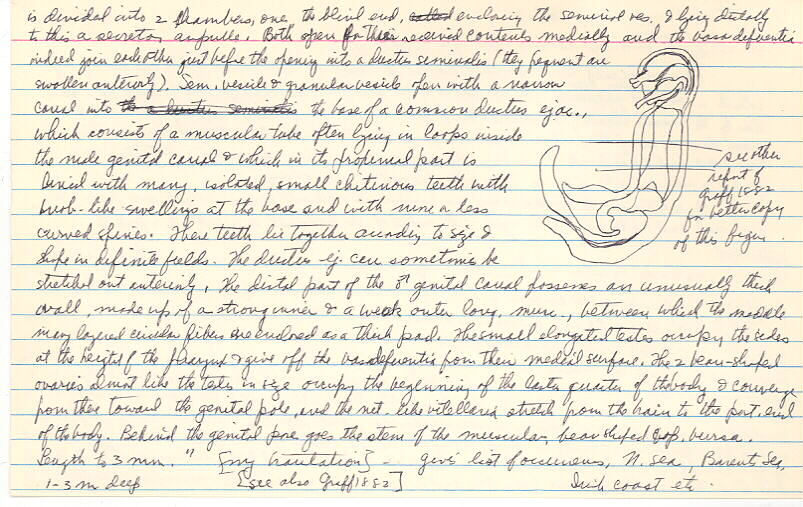 is divided into 2 chambers, one, the blind end, called enclosing the seminal ves. & lying distally
to this a secretory ampulle. Both open for their received contents medially and the vasa deferentia
indeed join each other just before the opening into a ductus seminalis (they frequent are
swollen anteriorly). Sem. vesicle & granular vesicle open with a narrow
canal into the a ductus seminalis the base of a common ductus ejac.,
which consists of a muscular tube often lying in loops inside
the male genital canal & which in its proximal part is
lined with many, isolated, small chitinous teeth with
bulb-like swellings at the base and with more or less
curved spines. These teeth lie together according to size &
shape in definite fields. The ductus ej. can sometimes be
stretched out anteriorly. The distal part of the ♂ genital canal possesses an unusually thick
wall, made up of a strong inner & a weak outer long. musc., between which the middle
many layered circular fibers are enclosed as a thick pad. The small elongated testes occupy the sides
at the height of the pharynx & give off the vasa deferentia from their medial surface. The 2 bean-shaped
ovaries almost like the testes in size occupy the beginning of the last quarter of the body & converge
from there toward the genital pole, and the net-like vitellaria stretch from the brain to the post. end
of the body. Behind the genital pore goes the stem of the muscular, pear shaped cop. bursa.
Length to 3 mm." [my translation] - gives list of occurrences, N. Sea, Barents Sea,
1-3 m deep [see also Graff 1882] Irish coast etc.
see other
report of
Graff 1882
for better copy
of this figure